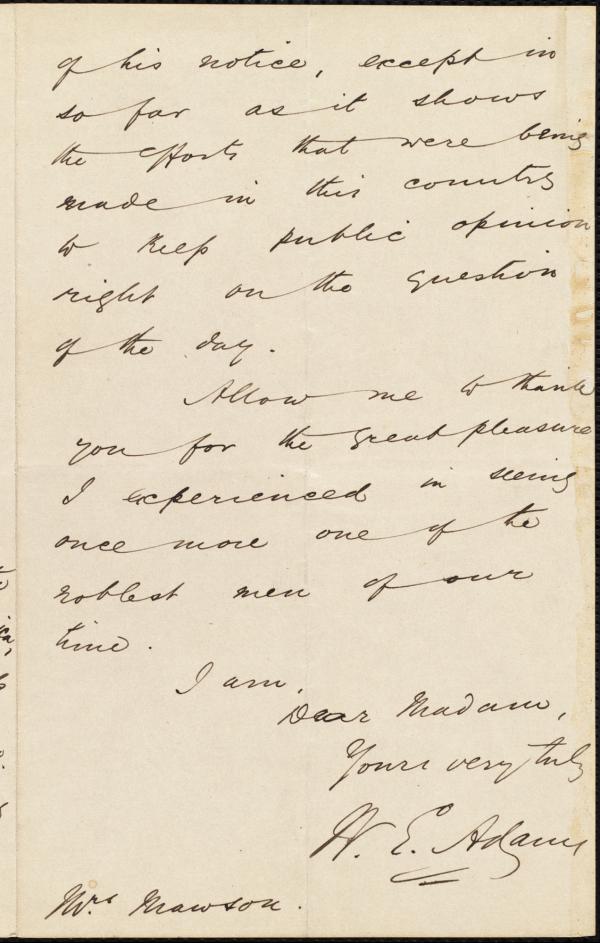 of his notice, except in
so far as it shows
the efforts that were being
made in this country
to keep public opinion
right on the question
of the day.
Allow me to thank
you for the great pleasure
I experienced in seeing
once more one of the
noblest men of our
time.
I am,
Dear Madam,
Yours very truly
W. E. Adams
Mrs Mawson.